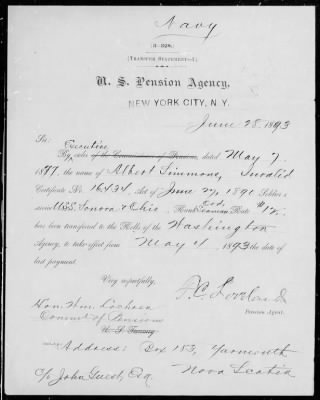 Navy
(3-328.)
(TRANSFER STATEMENT-1)
U. S. Pension Agency,
NEW YORK CITY, N.Y.
June 28, 1893
Sir:
Executive
By order of the Commissioner of Pensions, dated May 7,
1877, the name of Albert Simmons, Invalid
Certificate No. 16434 Act of June 27, 1890 Soldier's
service USS. Sonora & Ohio, Rank Seaman Rate $12.
has been transferred to the Rolls of the Washington
Agency, to take effect from May 4 1893 the date of
last payment.
Very respectfully,
Pension Agent.
Hon. Wm. Lochren
Commr of Pensions
U. S. Treasury
Address: Box 183, Yarmouth
c/o John Guest, Esq Nova Scotia